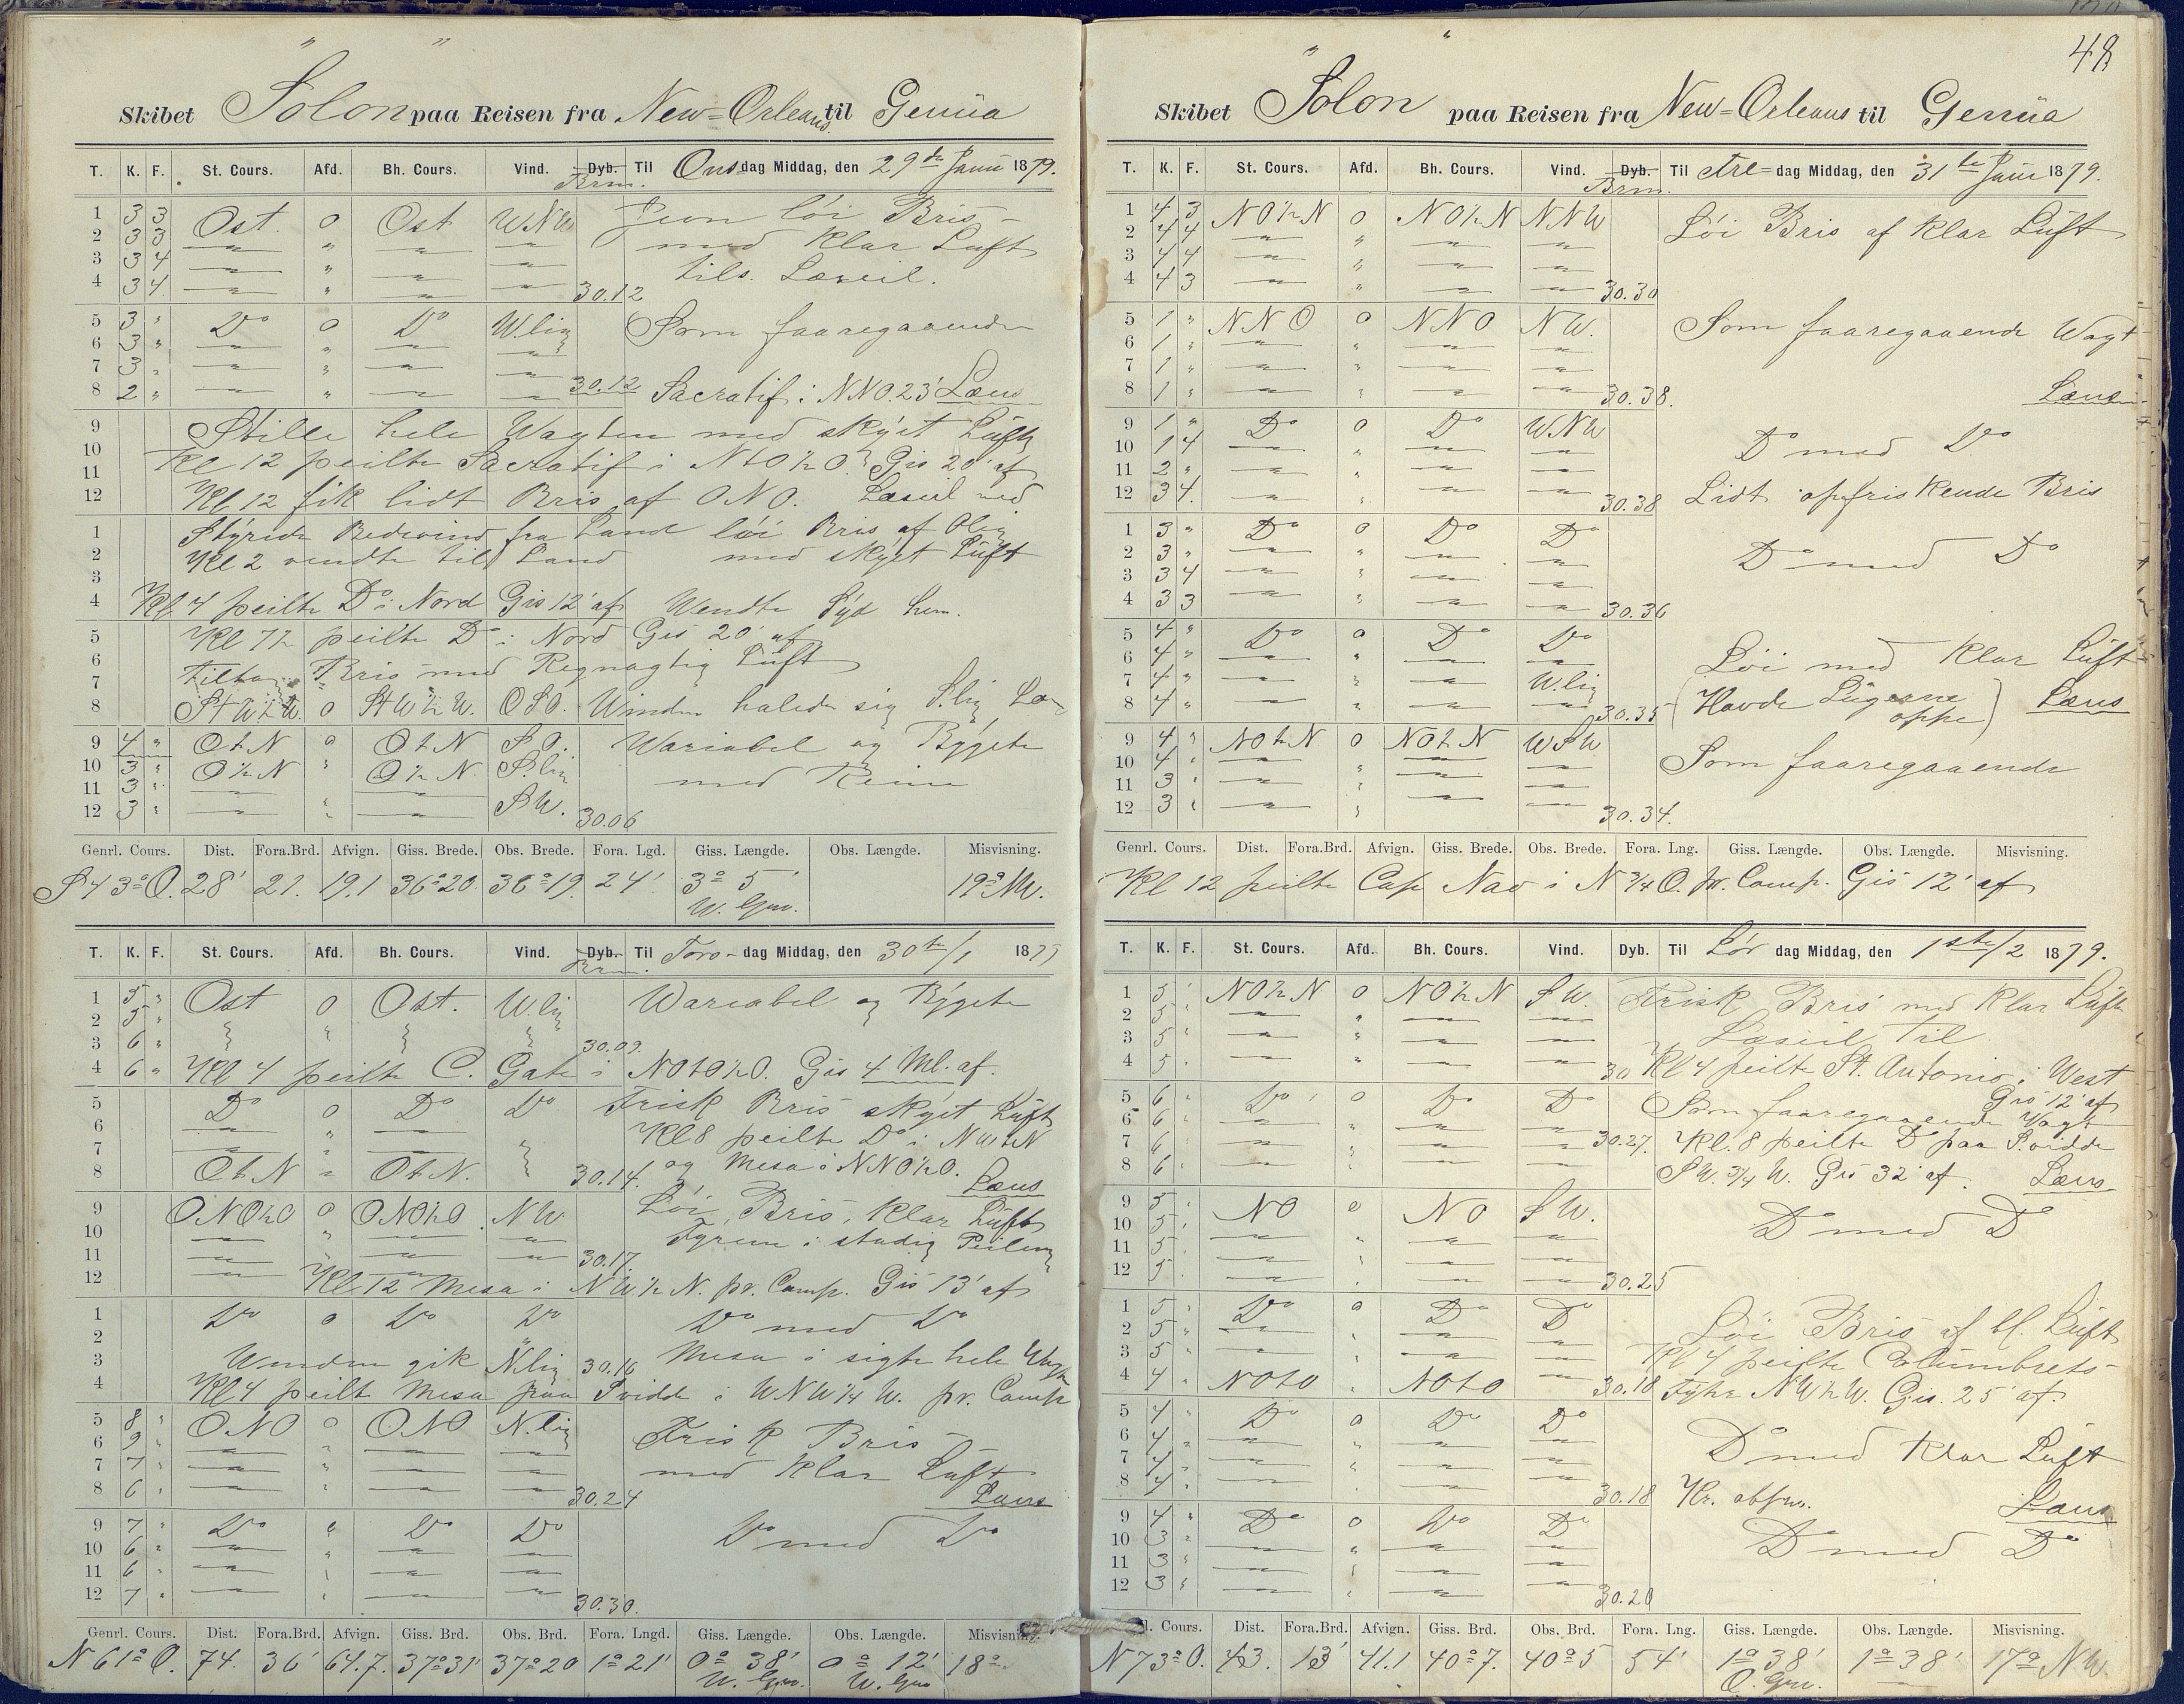 Skibet Solon paa Reisen fra New=Orleans til Genüa
T. K. F. St. Cours. Afd. Bh. Cours. Vind. Dyb. Til Onsdag Middag, den 29de Janu 1879.
Brm.
1 3 3 Ost. 0 Ost WNW Jevn löi Bris
2 3 3 med Klar Luft
3 3 4 tils. Læseil.
4 3 4 30.12
5 3 " Do 0 Do W.lig Som faaregaaende
6 3 "
7 3 "
8 2 " 30.12 Sacratif i NNO. 23' Læns
9 Stille hele Wagten med skÿet Lüft
10 Kl 12 peilte Sacratif i NtO½O. Gis 20' af
11
12 Kl 12 fik lidt Bris af ONO. Læseil ned
1 Stÿrede Bidevind fra Land löi Bris af Olig
2 Kl 2 vendte til Land med skÿet Lüft
3
4 Kl 4 peilte Do i Nord Gis 12' af Wendte Sÿd
5 Kl 7½ peilte Do i Nord Gis 20' af
6 Bris med Regnagtig Lüft
7
8 StW½W. 0 StW½W. OSO. Winden halede sig S.lig
9 4 " OtN 0 OtN S.O. Wariabel og Bÿgete
10 3 " O½N " O½N S.lig med
11 3 "
12 3 " SW. 30.06
Genrl. Cours. Dist. Fora.Brd. Afvign. Giss. Brede. Obs. Brede. Fora. Lgd. Giss. Længde. Obs. Længde. Misvisning.
S 43° O. 28' 21. 19,1 36°20 36°19 24' 3° 5' 19° NW.
W. Grw.
T. K. F. St. Cours. Afd. Bh. Cours. Vind. Dyb. Til Tors- dag Middag, den 30te/1 1879
Brm.
1 5 " Ost 0 Ost. W.lig Wariabel og Bÿgete
2 5 "
3 6 " 30.09.
4 6 " Kl 4 peilte C. Gate i NOtO½O. Gis 4 Ml. af.
5 Do 0 Do Do Frisk Bris skÿet Lüft
6 Kl 8 peilte Do i NWtN
7 og Mesa i NNO½O.
8 OtN " OtN. 30.14. Læns
9 ONO½O 0 ONO½O NW Löi Bris, Klar Lüft
10 Fyrene i stadig Peiling
11 30.17.
12 Kl 12 Mesa i NW½N. pr. Comp. Gis 13' af
1 Do 0 Do Do Do med Do
2
3 Winden gik N.lig 30.16 Mesa i sigte hele Wagten
4 Kl 4 peilt Mesa paa Svidde i WNW¼W. pr. Comp
5 8 " ONO 0 ONO N.lig Frisk Bris
6 9 "
7 7 " med Klar Luft
8 6 " 30.24 Læns
9 7 " Do " Do Do Do med Do
10 6 "
11 6 "
12 7 " 30.30.
Genrl. Cours. Dist. Fora.Brd. Afvign. Giss. Brd. Obs. Brd. Fora. Lngd. Giss. Længde. Obs. Længde. Misvisning.
N 61° O. 74. 36' 64.7. 37°31' 37°20 1°21' 0° 38' 0° 12' 18°
W. Grw. W. Grw
48
Skibet Solon paa Reisen fra New=Orleans til Genüa
T. K. F. St. Cours. Afd. Bh. Cours. Vind. Dyb. Til Fre= dag Middag, den 31te Janu 1879.
Brm.
1 4 3 NO½N 0 NO½N NNW Löi Bris af Klar Lüft
2 4 4
3 4 4
4 4 3 30.30
5 1 " NNO 0 NNO NW. Som faaregaaende Wagt
6 1 "
7 1 "
8 1 " 30.38. Læns
9 1 " Do 0 Do WNW Do med Do
10 1 4
11 2 "
12 3 4. 30.38 Lidt opfriskende Bris
1 3 " Do 0 Do Do
2 3 " Do med Do
3 3 4
4 3 3 30.36
5 4 " Do 0 Do Do Löi med Klar Lüft
6 4 "
7 4 " W.lig (Havde Lügerne oppe)
8 4 " 30.35 Læns
9 4 " NOtN 0 NOtN WSW Som faaregaaende
10 4 "
11 3 "
12 3 " 30.34.
Genrl. Cours. Dist. Fora.Brd. Afvign. Giss. Brede. Obs. Brede. Fora. Lng. Giss. Længde. Obs. Længde. Misvisning.
Kl 12 peilte Cap Nao i N ¾ O. pr. Comp. Gis 12' af
T. K. F. St. Cours. Afd. Bh. Cours. Vind. Dyb. Til Lör dag Middag, den 1ste/2 1879.
1 5 " NO½N 0 NO½N SW. Frisk Bris med Klar Lüft
2 5 " Læseil til
3 5 "
4 5 " 30 Kl 4 peilte St. Antonio i West
Gis 12' af
5 6 " Do 0 Do Do Som faaregaaende Vagt
6 6 "
7 6 " 30.27. Kl. 8 peilte Do paa Svidde
8 6 " SW. ¾ W. Gis 32' af. Læns
9 5 " NO 0 NO SW. Do med Do
10 5 "
11 5 "
12 5 " 30.25
1 5 " Do 0 Do Do Löi Bris af bl. Lüft
2 5 "
3 5 " Kl 4 peilte Columbrets
4 4 " NOtO " NOtO 30.18 Fÿhr NW½W. Gis. 25' af.
5 4 " Do 0 Do Do
6 4 " Do med Klar Lüft
7 4 "
8 4 " 30.18 Læns
9 4 " Do 0 Do Do Do med Do
10 3 "
11 3 "
12 3 " 30.20
l. Cours. Dist. Fora.Brd. Afvign. Giss. Brd. Obs. Brd. Fora. Lng. Giss. Længde. Obs. Længde. Misvisning.
N 73° O. 43. 13' 41.1 40°7. 40°5 54' 1° 38' 1° 38' 17° NW.
O. Grw.